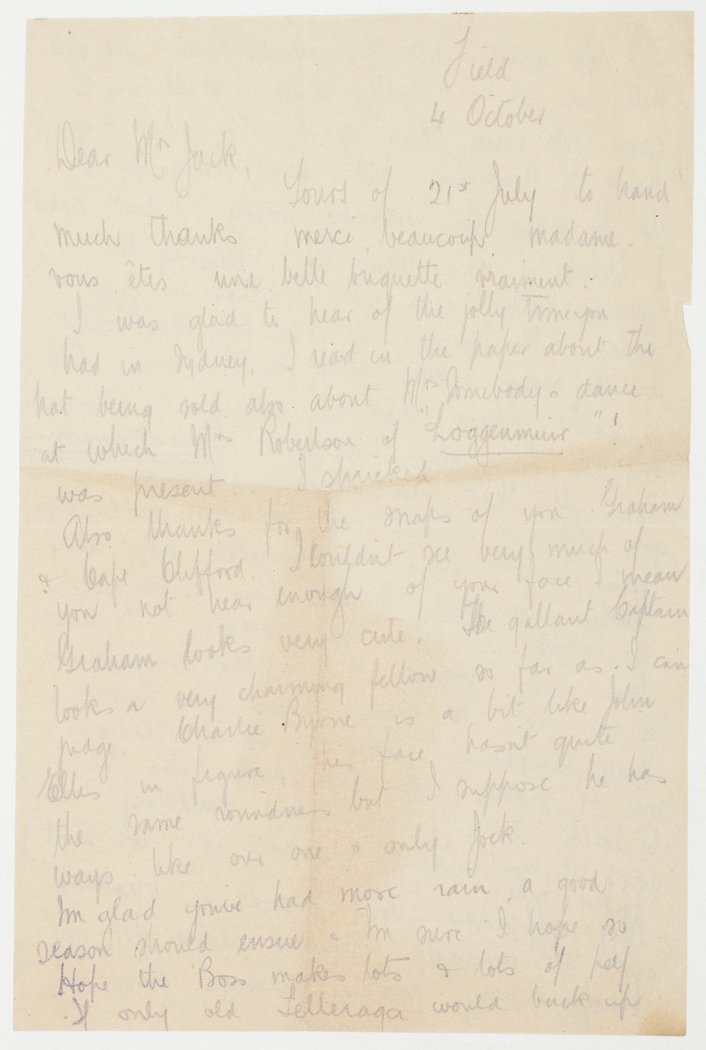 Field
4 October
Dear Mrs Jack,
Yours of 21st July to hand
much thanks merci beaucoup madame.
vous êtes une belle vraiment.
I was glad to hear of the jolly time you
had in Sydney. I read in the paper about the
hat being sold also about Mrs Somebody's dance
at which Mrs Robertson of "Loggenmuir"!
was present. I shrieked
Also thanks for the snaps of you Graham
& Capt Clifford. I couldn't see very much of
you not near enough of your face I mean
Graham looks very cute. The gallant Captain
looks a very charming fellow so far as I can
judge. Charlie Byrne is a bit like John
in figure, his face hasn't quite
the same roundness but I suppose he has
ways like our one & only Jock.
I'm glad you've had more rain, a good
season should ensue & I'm sure I hope so
Hope the Boss makes lots & lots of pelf
If only old would buck up